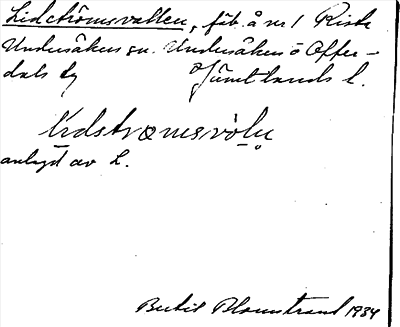 Lidströmsvallen, fäb. å nr 1 Riste
Undersåkers sn. Undersåkers o Offer-
dals tg Jämtlands l.
lidstrømsvòlu
anlagd av L.
Bertil Blomstrand 1934